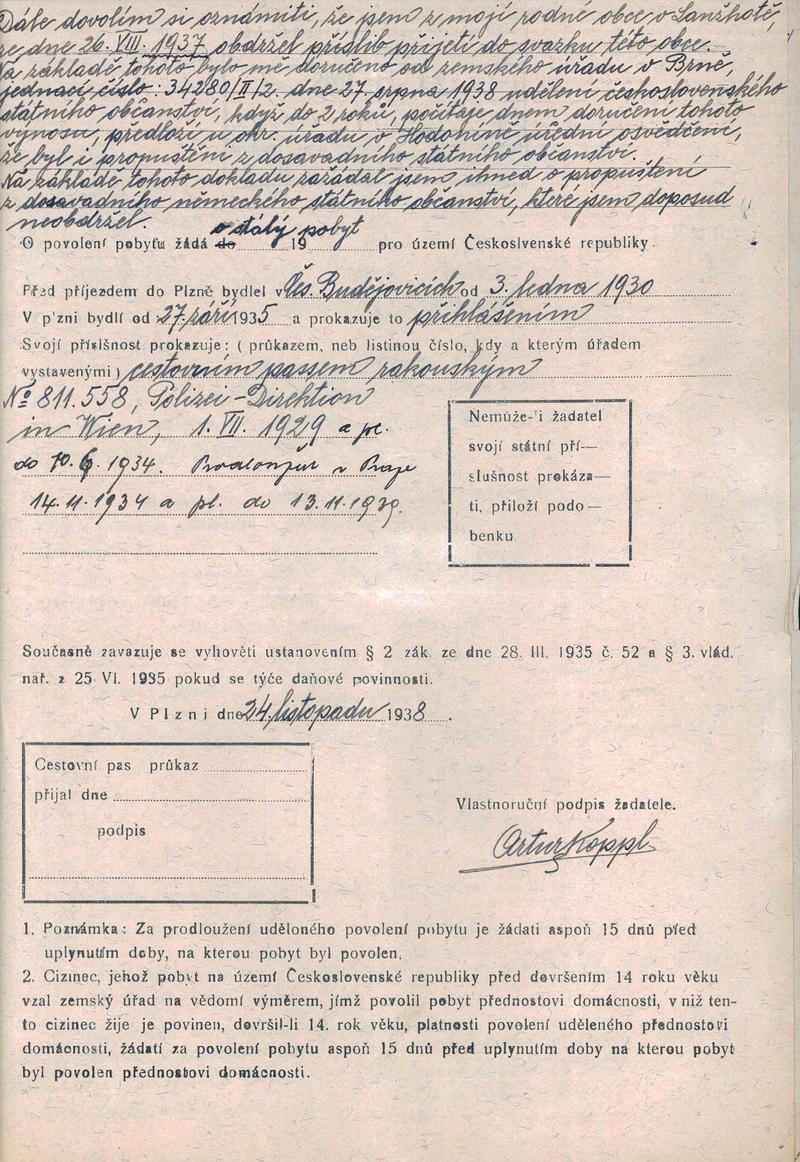 Dále dovolím si oznámiti, že jsem z mojí rodné obce v Lanžhotě,
ze dne 26. VIII. 1937 obdržel příslib přijetí do svazku této obce.
Na základě tohoto bylo mě doručeno od zemského úřadu v Brně,
jednací číslo: 34280/II/2. dne 27. srpna 1938 udělení československého
státního občanství, když do 2 roků, počítaje dnem doručení tohoto
výnosu, předloží u okr. úřadu v Hodoníně úřední osvědčení,
že byl i propuštění z dosavadního státního občanství.
Na základě tohoto dokladu zažádal jsem ihned o propuštění
z dosavadního německého státního občanství, které jsem doposud
neobdržel.
o stálý pobyt
O povolení pobytu žádá do 19 pro území Československé republiky.
Před příjezdem do Plzně bydlel v Čes. Budějovicích od 3. ledna 1930
V p'zni bydlí od 27. září 1935 a prokazuje to přihlášením
Svojí příslšnost prokazuje: ( průkazem, neb listinou číslo, kdy a kterým úřadem
vystavenými ) cestovním passem rakouským
No 811.558, Polizei-Direktion
in Wien, 1. VII. 1929 a pl.
do 10. 6. 1934. Prodloužen v Praze
14. 11. 1934 a pl. do 13. 11. 1939.
Nemůže-'i žadatel
svojí státní pří—
slušnost prokáza—
ti, přiloží podo—
benku.
Současně zavazuje se vyhověti ustanovením § 2 zák. ze dne 28. III. 1935 č. 52 a § 3. vlád.
nař. z 25 VI. 1935 pokud se týče daňové povinnosti.
V Plzni dne 24. listopadu 1938.
Cestovní pas průkaz
přijal dne
podpis
Vlastnoruční podpis žadatele.
Artur Köppl
1. Poznámka: Za prodloužení uděloného povolení pobytu je žádati aspoň 15 dnů před
uplynutím doby, na kterou pobyt byl povolen.
2. Cizinec, jehož pobyt na území Československé republiky před dovršením 14 roku věku
vzal zemský úřad na vědomí výměrem, jímž povolil pobyt přednostovi domácnosti, v niž ten-
to cizinec žije je povinen, dovršil-li 14. rok věku, platnosti povolení uděleného přednostovi
domácnosti, žádatí za povolení pobytu aspoň 15 dnů před uplynutím doby na kterou pobyt
byl povolen přednostovi domácnosti.